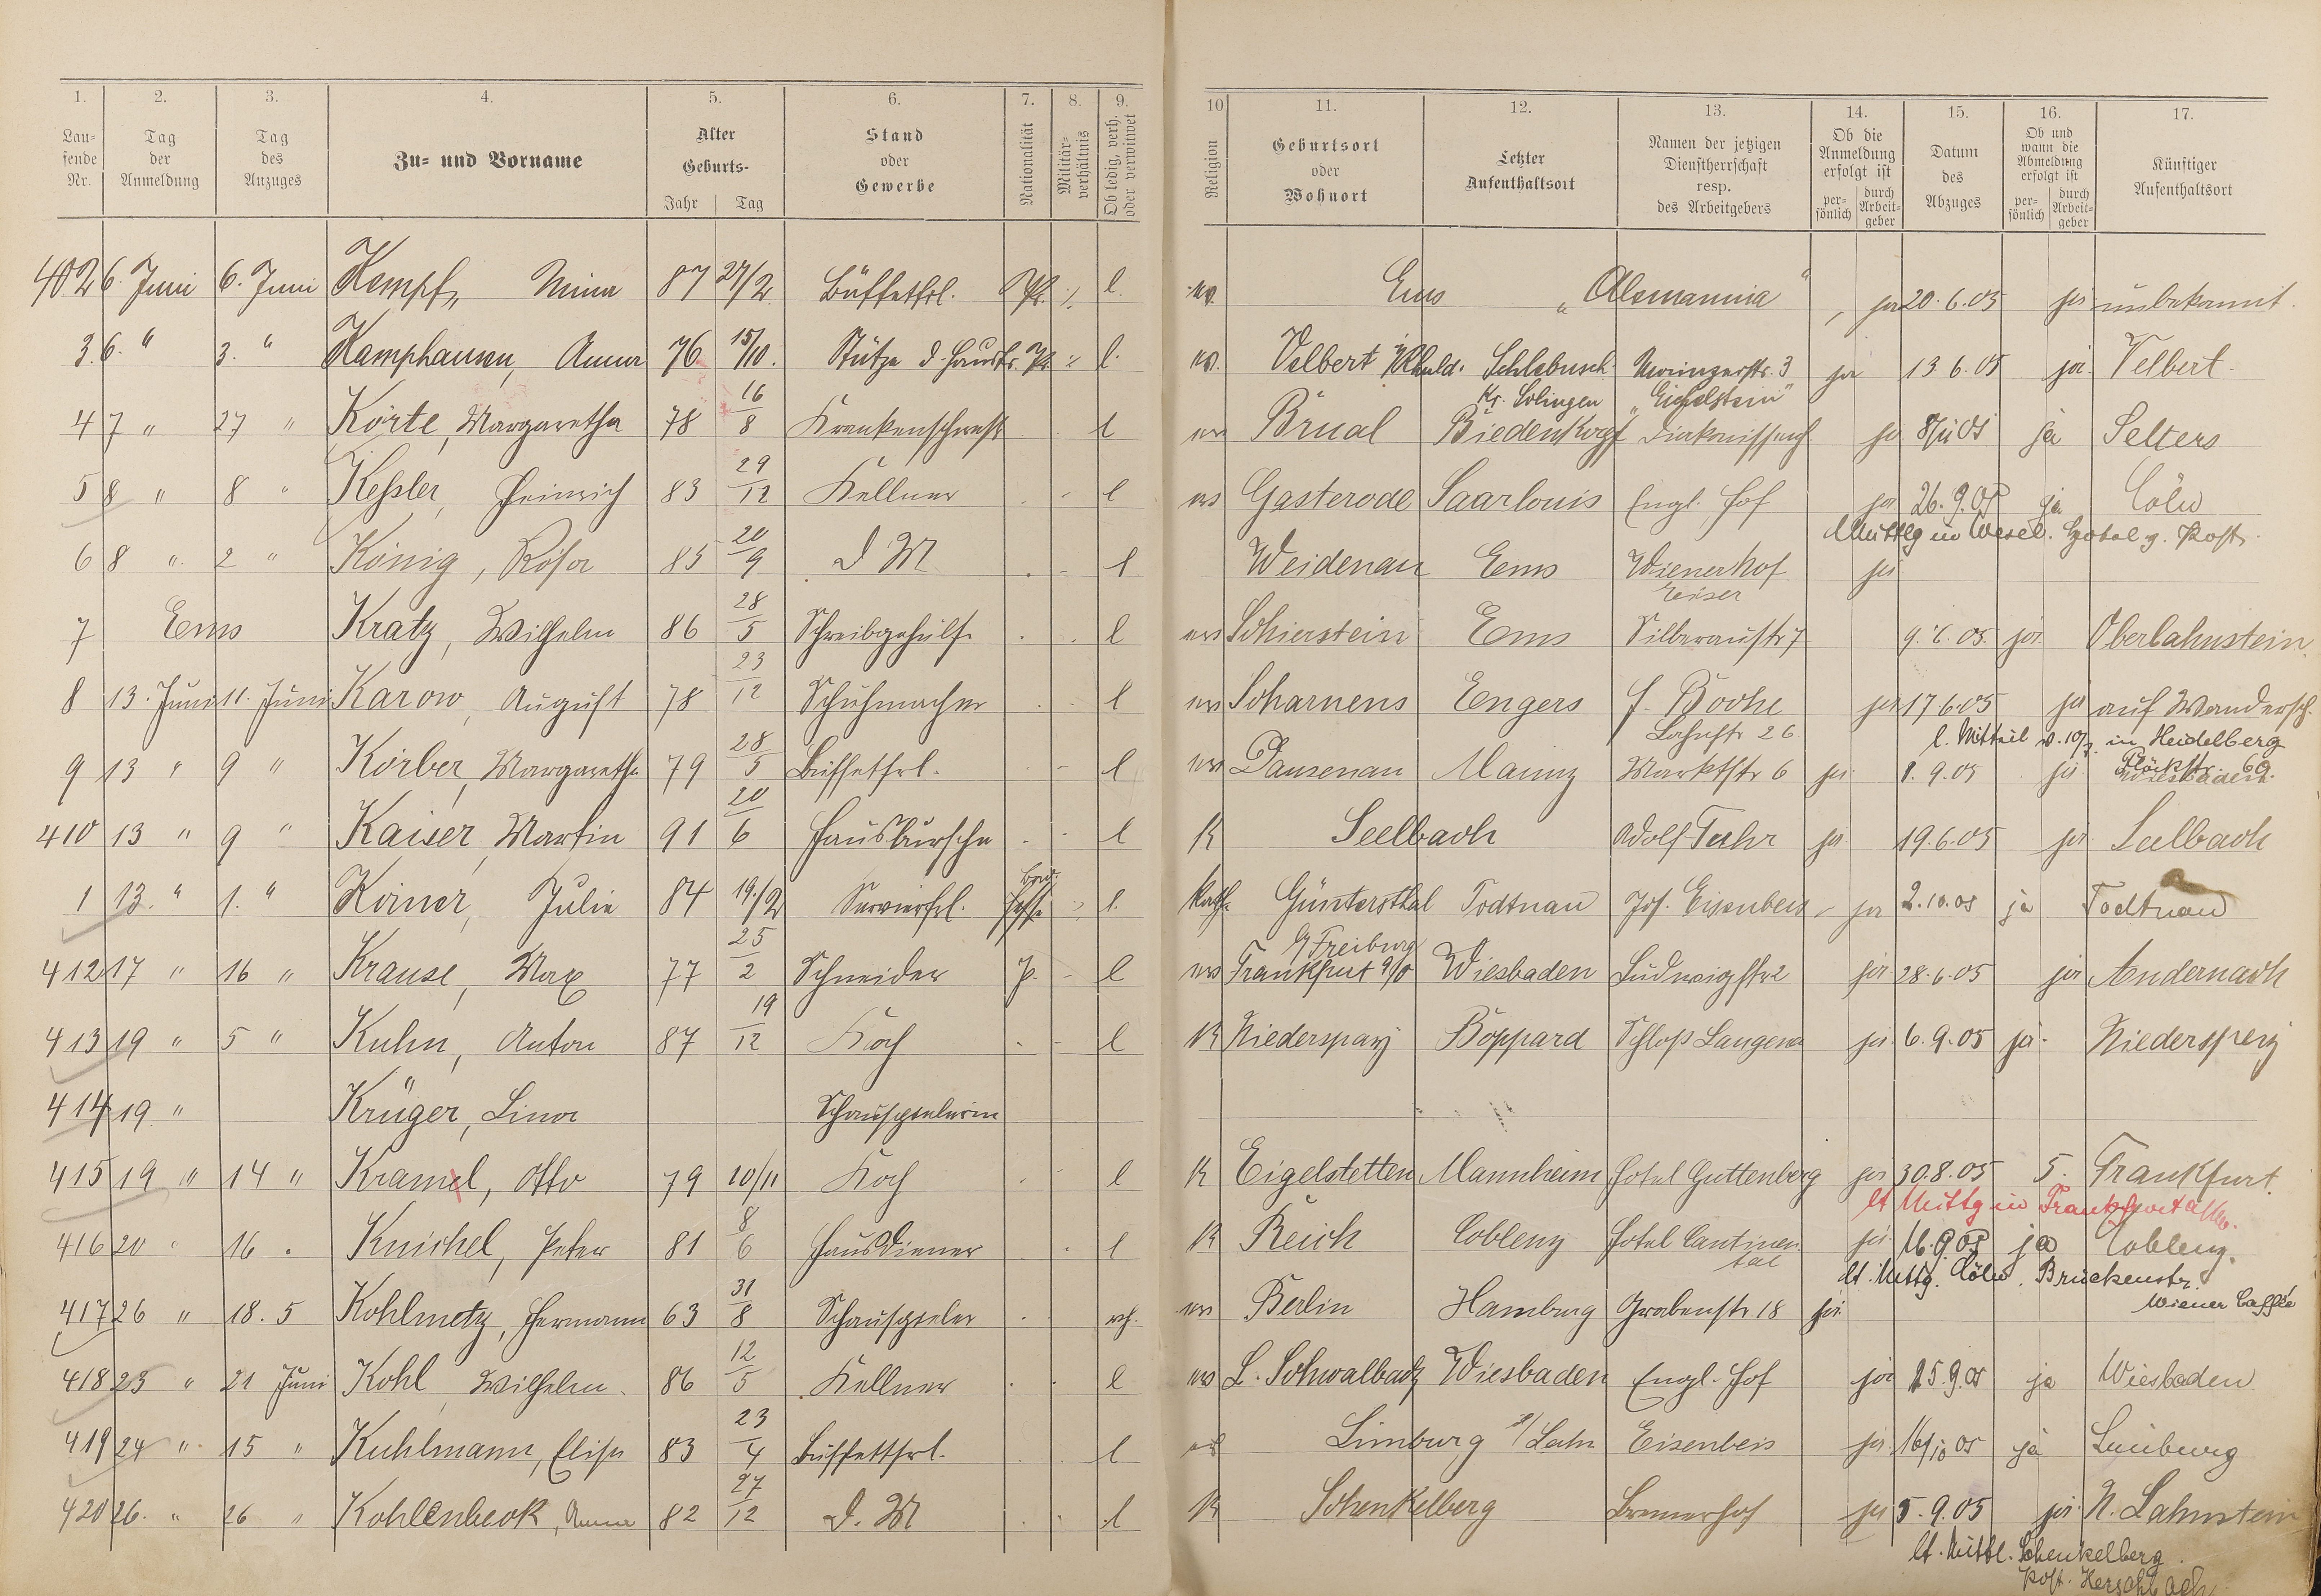 1. 2. 3. 4. 5. 6. 7. 8. 9. 10 11. 12. 13. 14. 15. 16. 17.
Lau-
fende
Nr.
Tag
der
Anmeldung
Tag
des
Anzuges
Zu- und Vorname
Alter
Geburts-
Jahr Tag
Stand
oder
Gewerbe
Nationalität
Militär-
verhältnis
Ob ledig, verh.
oder verwitwet
Religion
Geburtsort
oder
Wohnort
Letzter
Aufenthaltsort
Namen der jetzigen
Dienstherrschaft
resp.
des Arbeitgebers
Ob die
Anmeldung
erfolgt ist
per-
sönlich
durch
Arbeit-
geber
Datum
des
Abzuges
Ob und
wann die
Abmeldung
erfolgt ist
per-
sönlich
durch
Arbeit-
geber
Künftiger
Aufenthaltsort
402 6. Juni 6. Juni Kempf, Nina 87 27/2 Büffetfrl. Pr. l. ev. Ems "Alemannia" ja 20.6.05 ja unbekannt.
3. 6. " 3. " Kamphausen, Anna 76 15/10. Stütze d. Hausfr. Pr. l. ev. Velbert Rhnld. Schlebusch 3 ja 13 6.05 ja. Velbert.
Kr. Solingen "Eigelstein"
4 7 " 27 " Körte, Margaretha 78 16/8 Krankenschwest l ev Brual Biedenkopf ja 05 ja Selters
5 8 " 8 " Keßler, Heinrich 83 29/12 Kellner l ev Gasterode Saarlouis Engl. Hof ja 26.9.05 ja Cöln
Mittlg in Wesel. Hotel z. Post.
6 8 " 2 " König, Rosa 85 20/9 d M l Weidenau Ems Wienerhof ja
7 Ems Kratz, Wilhelm 86 28/5 Schreibgehülfe l ev Schierstein Ems Silberaustr 7 9.6.05. ja Oberlahnstein.
8 13. Juni 11. Juni Karow, August 78 23/12 Schuhmacher l ev Scharnens Engers ja 17 6.05 ja auf Wandersch.
Lahnstr 26
l. Mitteil v. 10/ in Heidelberg
9 13 " 9 " Körber, Margaretha 79 28/5 Büffetfrl. l ev Dausenau Mainz Marktstr 6 ja 1.9.05 ja Wiesbaden
Plöckstr. 69.
410 13 " 9 " Kaiser, Martin 91 20/6 Hausbursche l K Seelbach Adolf Fuhr ja 19.6.05 ja Seelbach
1 13. " 1. " Koiner, Julie 84 19./2 Servierfrl. l. Kath. Güntersthal Todtnau Jos. Eisenbeis ja 2.10.05 ja Todtnau
Freiburg
412 17 " 16 " Krause, Max 77 25/2 Schneider P. l ev Frankfut a/o Wiesbaden Ludwigstr 2 ja 28.6.05 ja Andernach
413 19 " 5 " Kuhn, Anton 87 19/12 Koch l K Niederspay Boppard Schloß Langenau ja 6.9.05 ja. Niederspay
414 19 " Krüger, Lina Schauspielerin
415 19 " 14 " Kramel, Otto 79 10/11 Koch l K Eigelstetten Mannheim Hotel Guttenberg ja 30.8.05 5. Frankfurt.
lt Mittg in Frankfurt
416 20 " 16 " Knichel, Peter 81 8/6 Hausdiener l K Reich Coblenz Hotel Continen
tal ja 16.9.05 ja Coblenz.
lt. Mittg. Cöln. Brückenstr.
Wiener Caffée
417 26 " 18.5 Kohlmetz, Hermann 63 31/8 Schauspieler vh. ev Berlin Hamburg Grabenstr 18 ja
418 23 " 21 Juni Kohl, Wilhelm. 86 12/5 Kellner l ev L. Schwalbach Wiesbaden Engl. Hof ja 15.9.05 ja Wiesbaden
419 24 " 15 " Kuhlmann, Elise 83 23/4 Buffettfrl. l Limburg a/Lahn Eisenbeis ja 16/10 05 ja Limburg
420 26. " 26 " Kohlenbeck, Anna 82 27/12 d. M l K Schenkelberg Bremerhof ja 5.9.05 ja N. Lahnstein
lt. Mittl. Schenkelberg.
Post. Herschbach